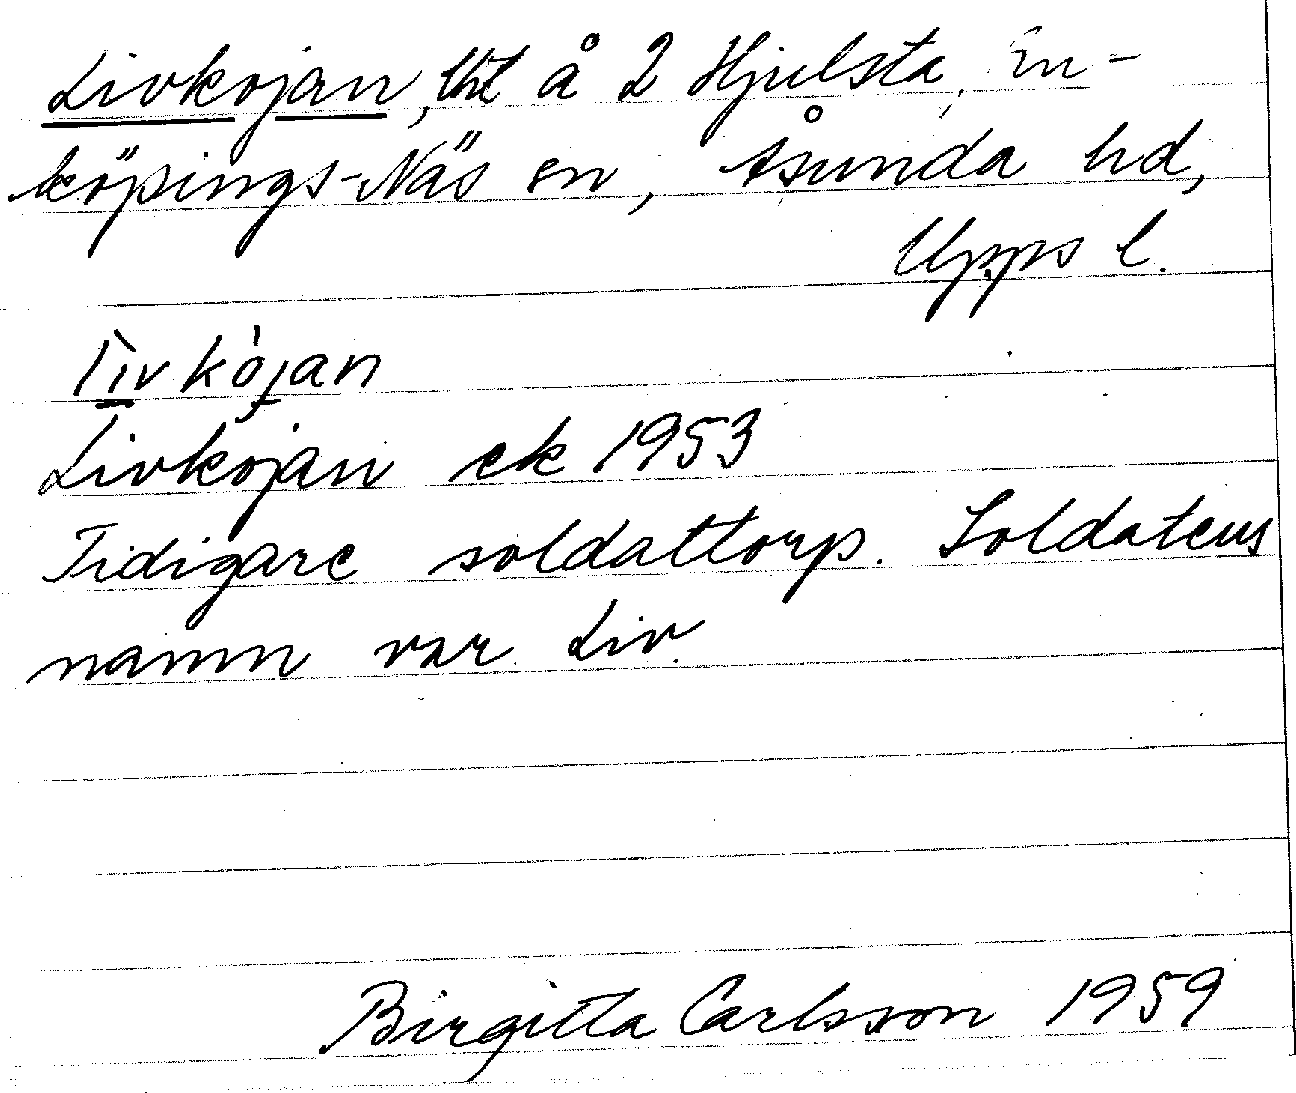 Livkojan, lht å 2 Hjulsta, En-
köpings-Näs sn, Åsunda hd,
Upps l.
Livkojan
Livkojan ek 1953
Tidigare soldattorp. Soldatens
namn var Liv.
Birgitta Carlsson 1959